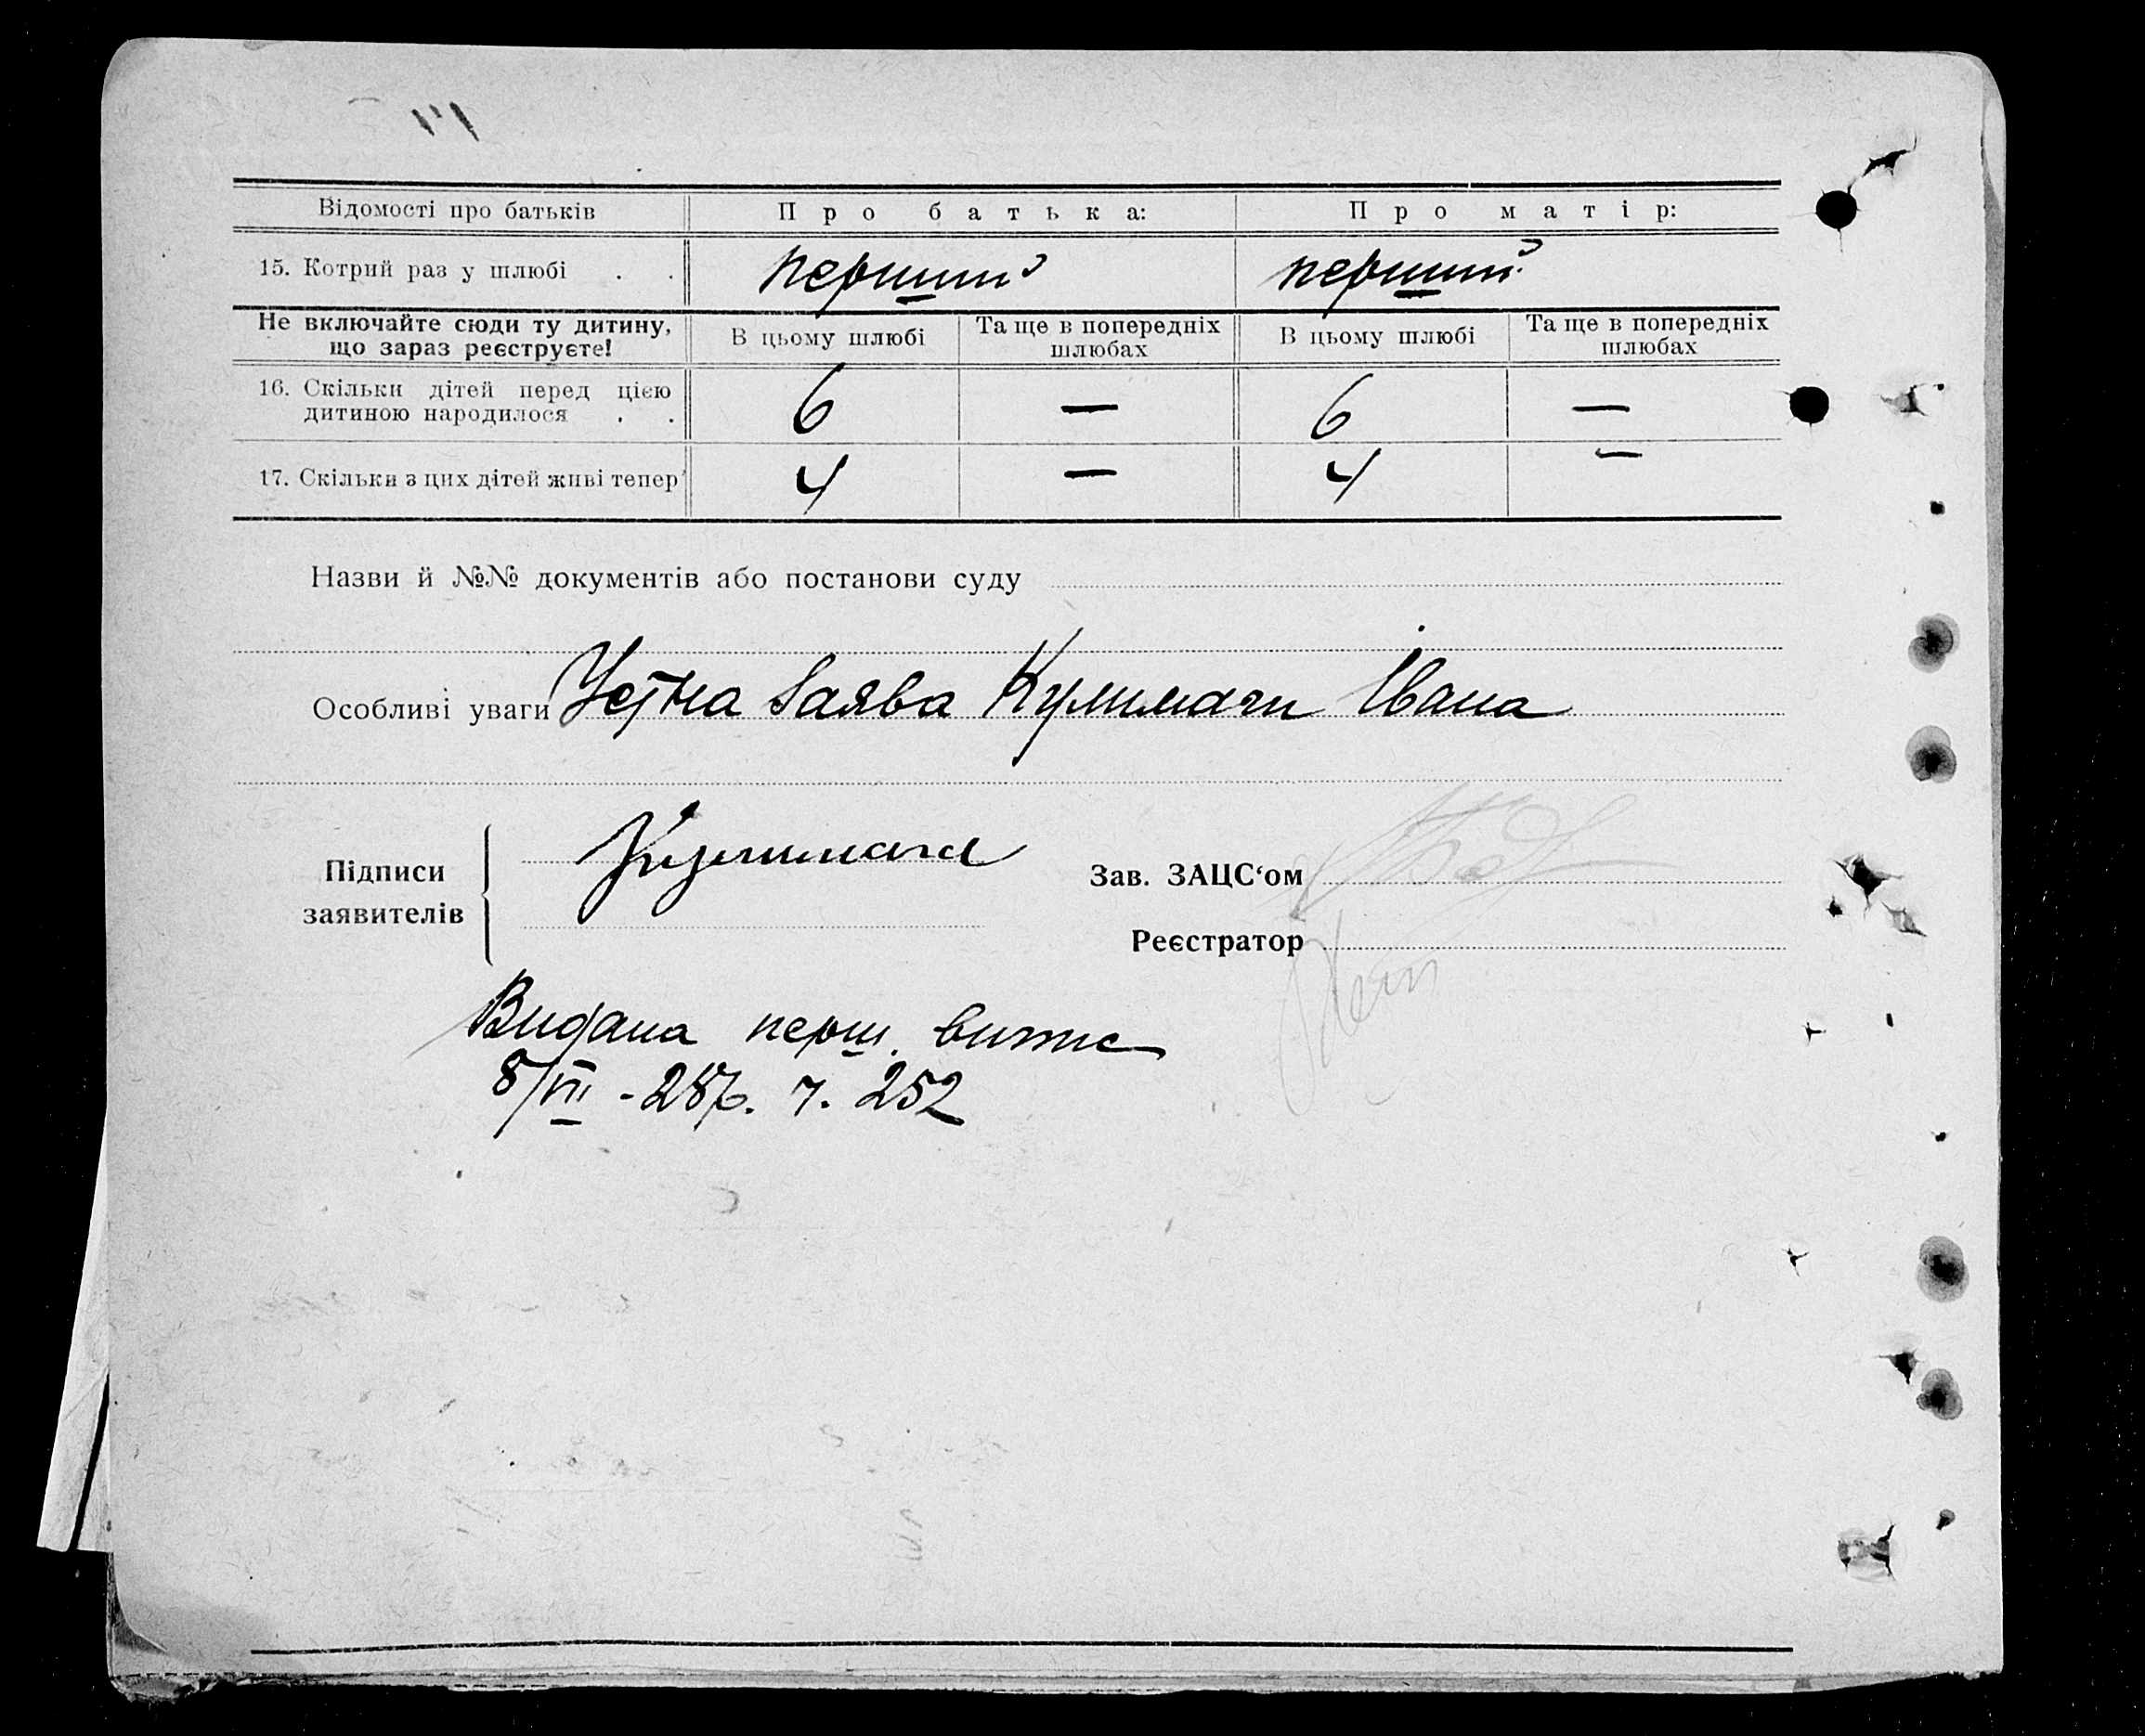 Відомості про батьків Про батька: Про матір:
15. Котрий раз у шлюбі . . перший перший
Не включайте сюди ту дитину, що зараз реєструєте! В цьому шлюбі Та ще в попередніх шлюбах В цьому шлюбі Та ще в попередніх шлюбах
16. Скільки дітей перед цією дитиною народилося . . 6 — 6 —
17. Скільки з цих дітей живі тепер 4 — 4 —
Назви й №№ документів або постанови суду
Особливі уваги Устна Заява Кулимачи Івана
Підписи заявителів
Зав. ЗАЦС‘ом
Реєстратор
Видана перш. витис
8/VII - 28р. ч. 252